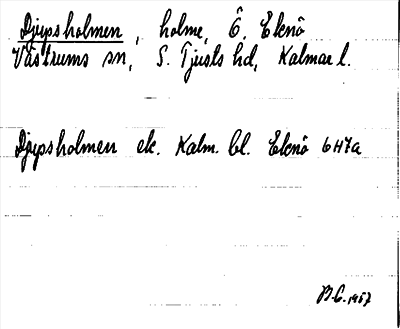 Djupsholmen, holme, Ö. Eknö
Västrums sn, S. Tjusts hd, Kalmar l.
Djupsholmen ek. Kalm. bl. Eknö 6H7a
1957